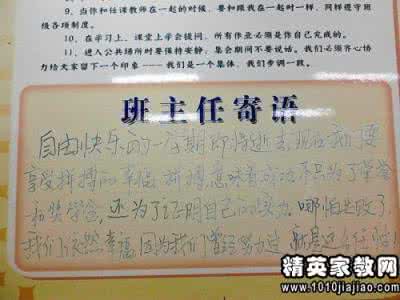 9、当你和任课教师在一起的时候，要和跟我在一起时一样，同样遵守班
级各项制度。
10、在学习上，课堂上学会提问，所有作业必须是你自己完成的。
11、进入公共场所时要保持安静；集会期间不要说话。我们必须齐心协
力给大家留下一个印象——我们是一个集体，我们步调一致。
班主任寄语
自由快乐的一星期即将逝去现在我们要
享受拼搏的幸福 拼搏意味着成功 不只为了荣誉
和奖学金，还为了证明自己的实力。哪怕失败了
我们依然幸福，因为我们曾经努力过
精英家教网
www.1010jiajiao.com